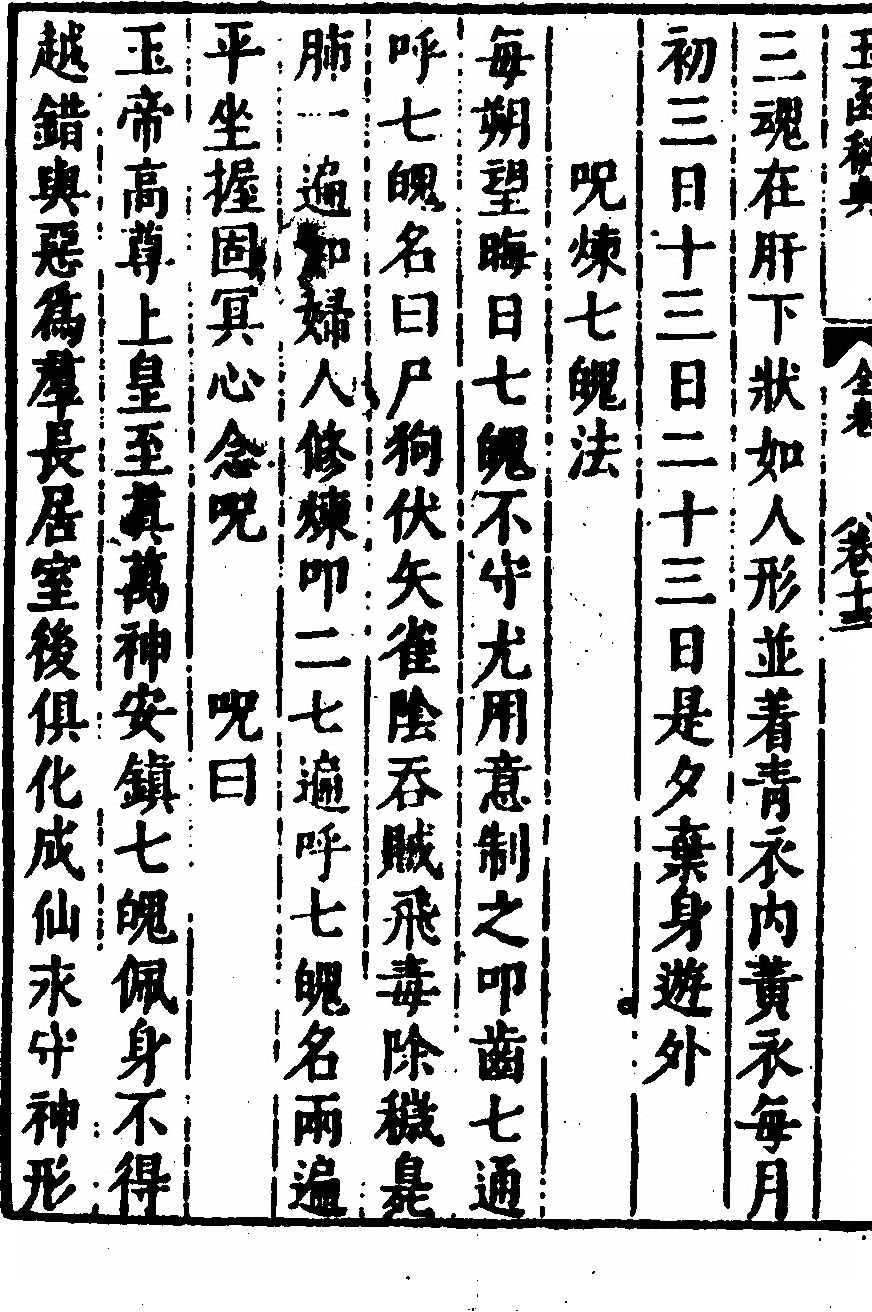 玉函秘典 全卷 卷十三
三魂在肝下狀如人形並着青衣內黃衣每月
初三日十三日二十三日是夕棄身遊外
呪煉七魄法
每朔望晦日七魄不守尤用意制之叩齒七通
呼七魄名曰尸狗伏矢雀陰吞賊飛毒除穢臭
肺一遍即婦人修煉叩二七遍呼七魄名兩遍
平坐握固冥心念呪 呪曰
玉帝高尊上皇至真萬神安鎮七魄佩身不得
越錯與惡為羣長居室後俱化成仙求守神形